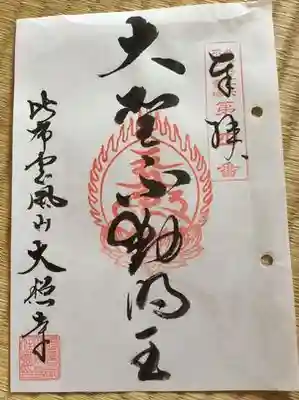 奉拝
大聖不動明王
比布雲風山 大照寺